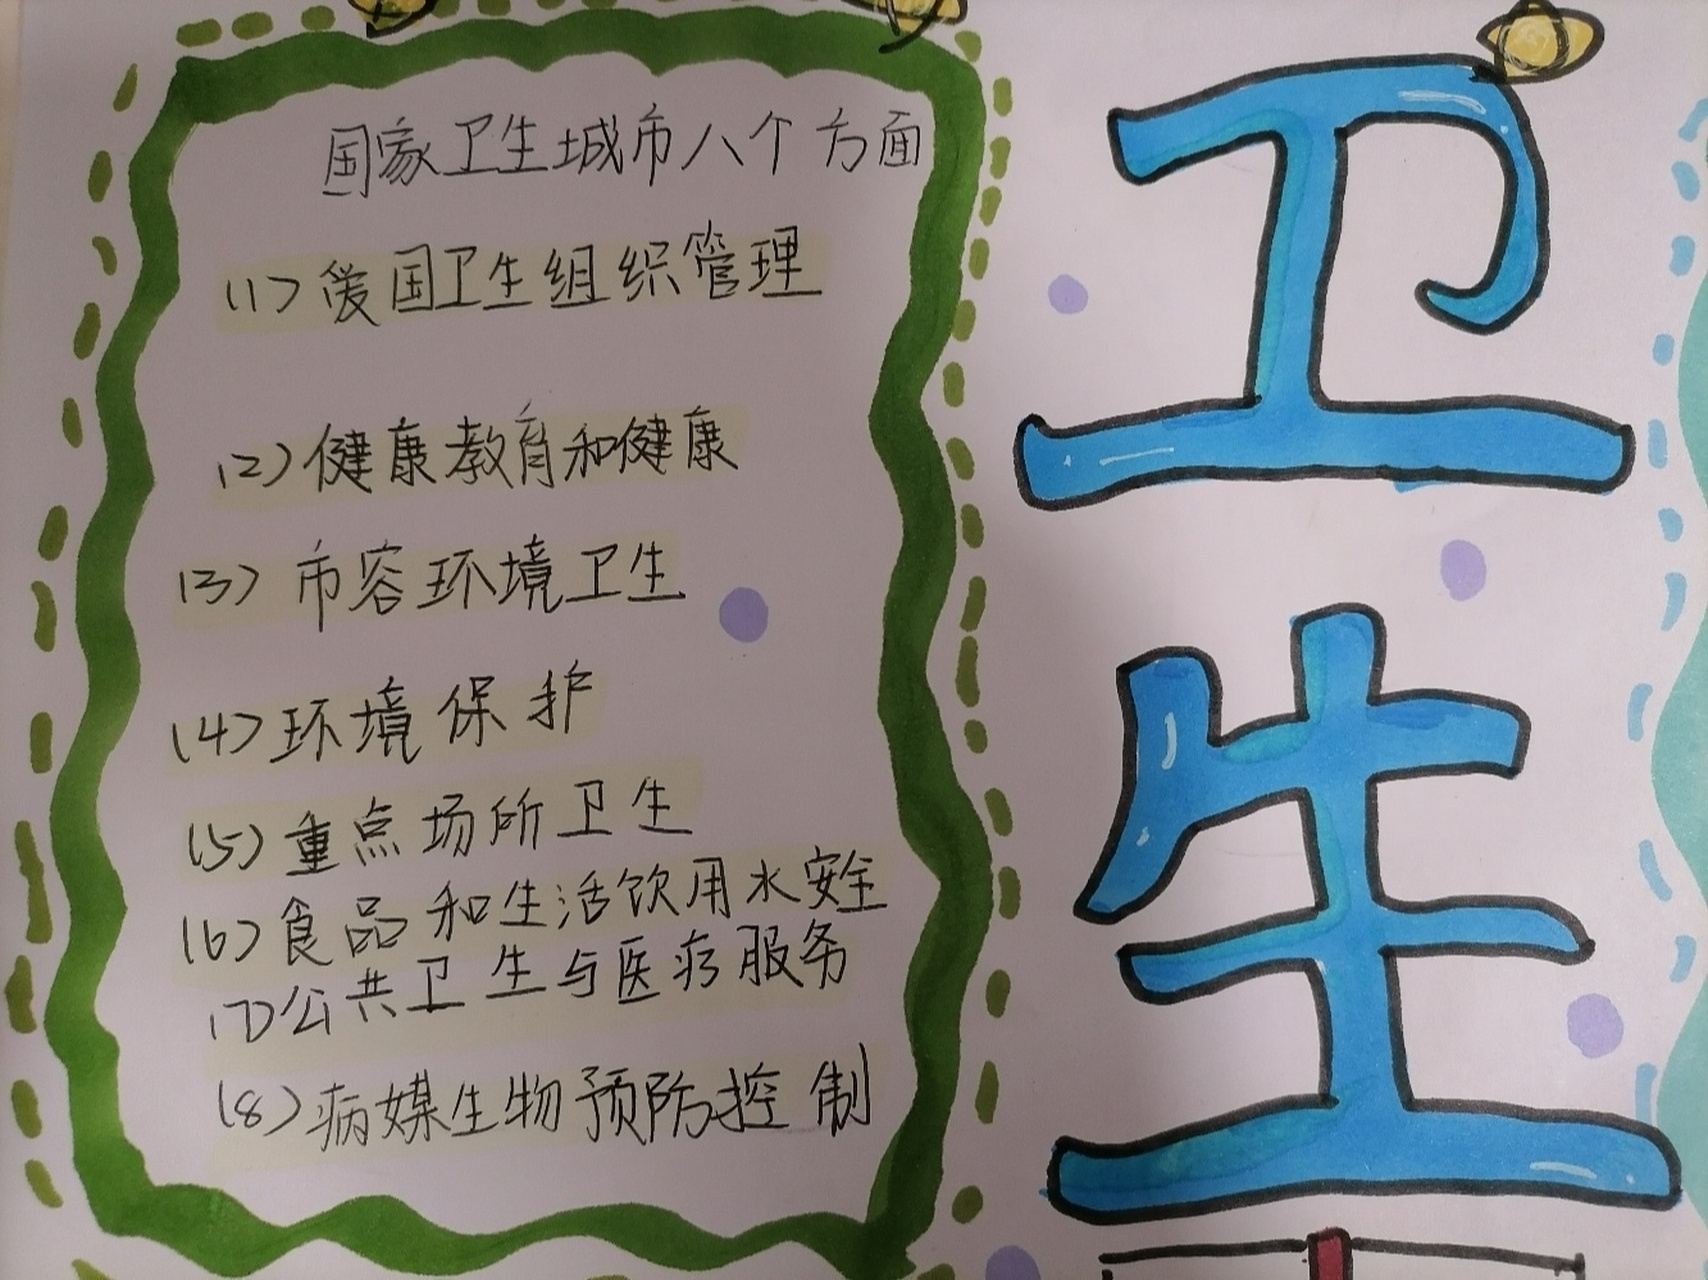 国家卫生城市八个方面
(1)爱国卫生组织管理
(2)健康教育和健康
(3)市容环境卫生
(4)环境保护
(5)重点场所卫生
(6)食品和生活饮用水安全
(7)公共卫生与医疗服务
(8)病媒生物预防控制
卫
生